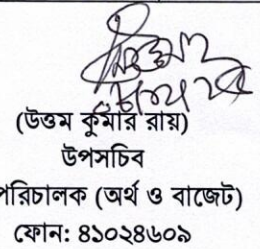 (উত্তম কুমার রায়)
উপসচিব
পরিচালক (অর্থ ও বাজেট)
ফোন: ৪১০২৪৬০৯